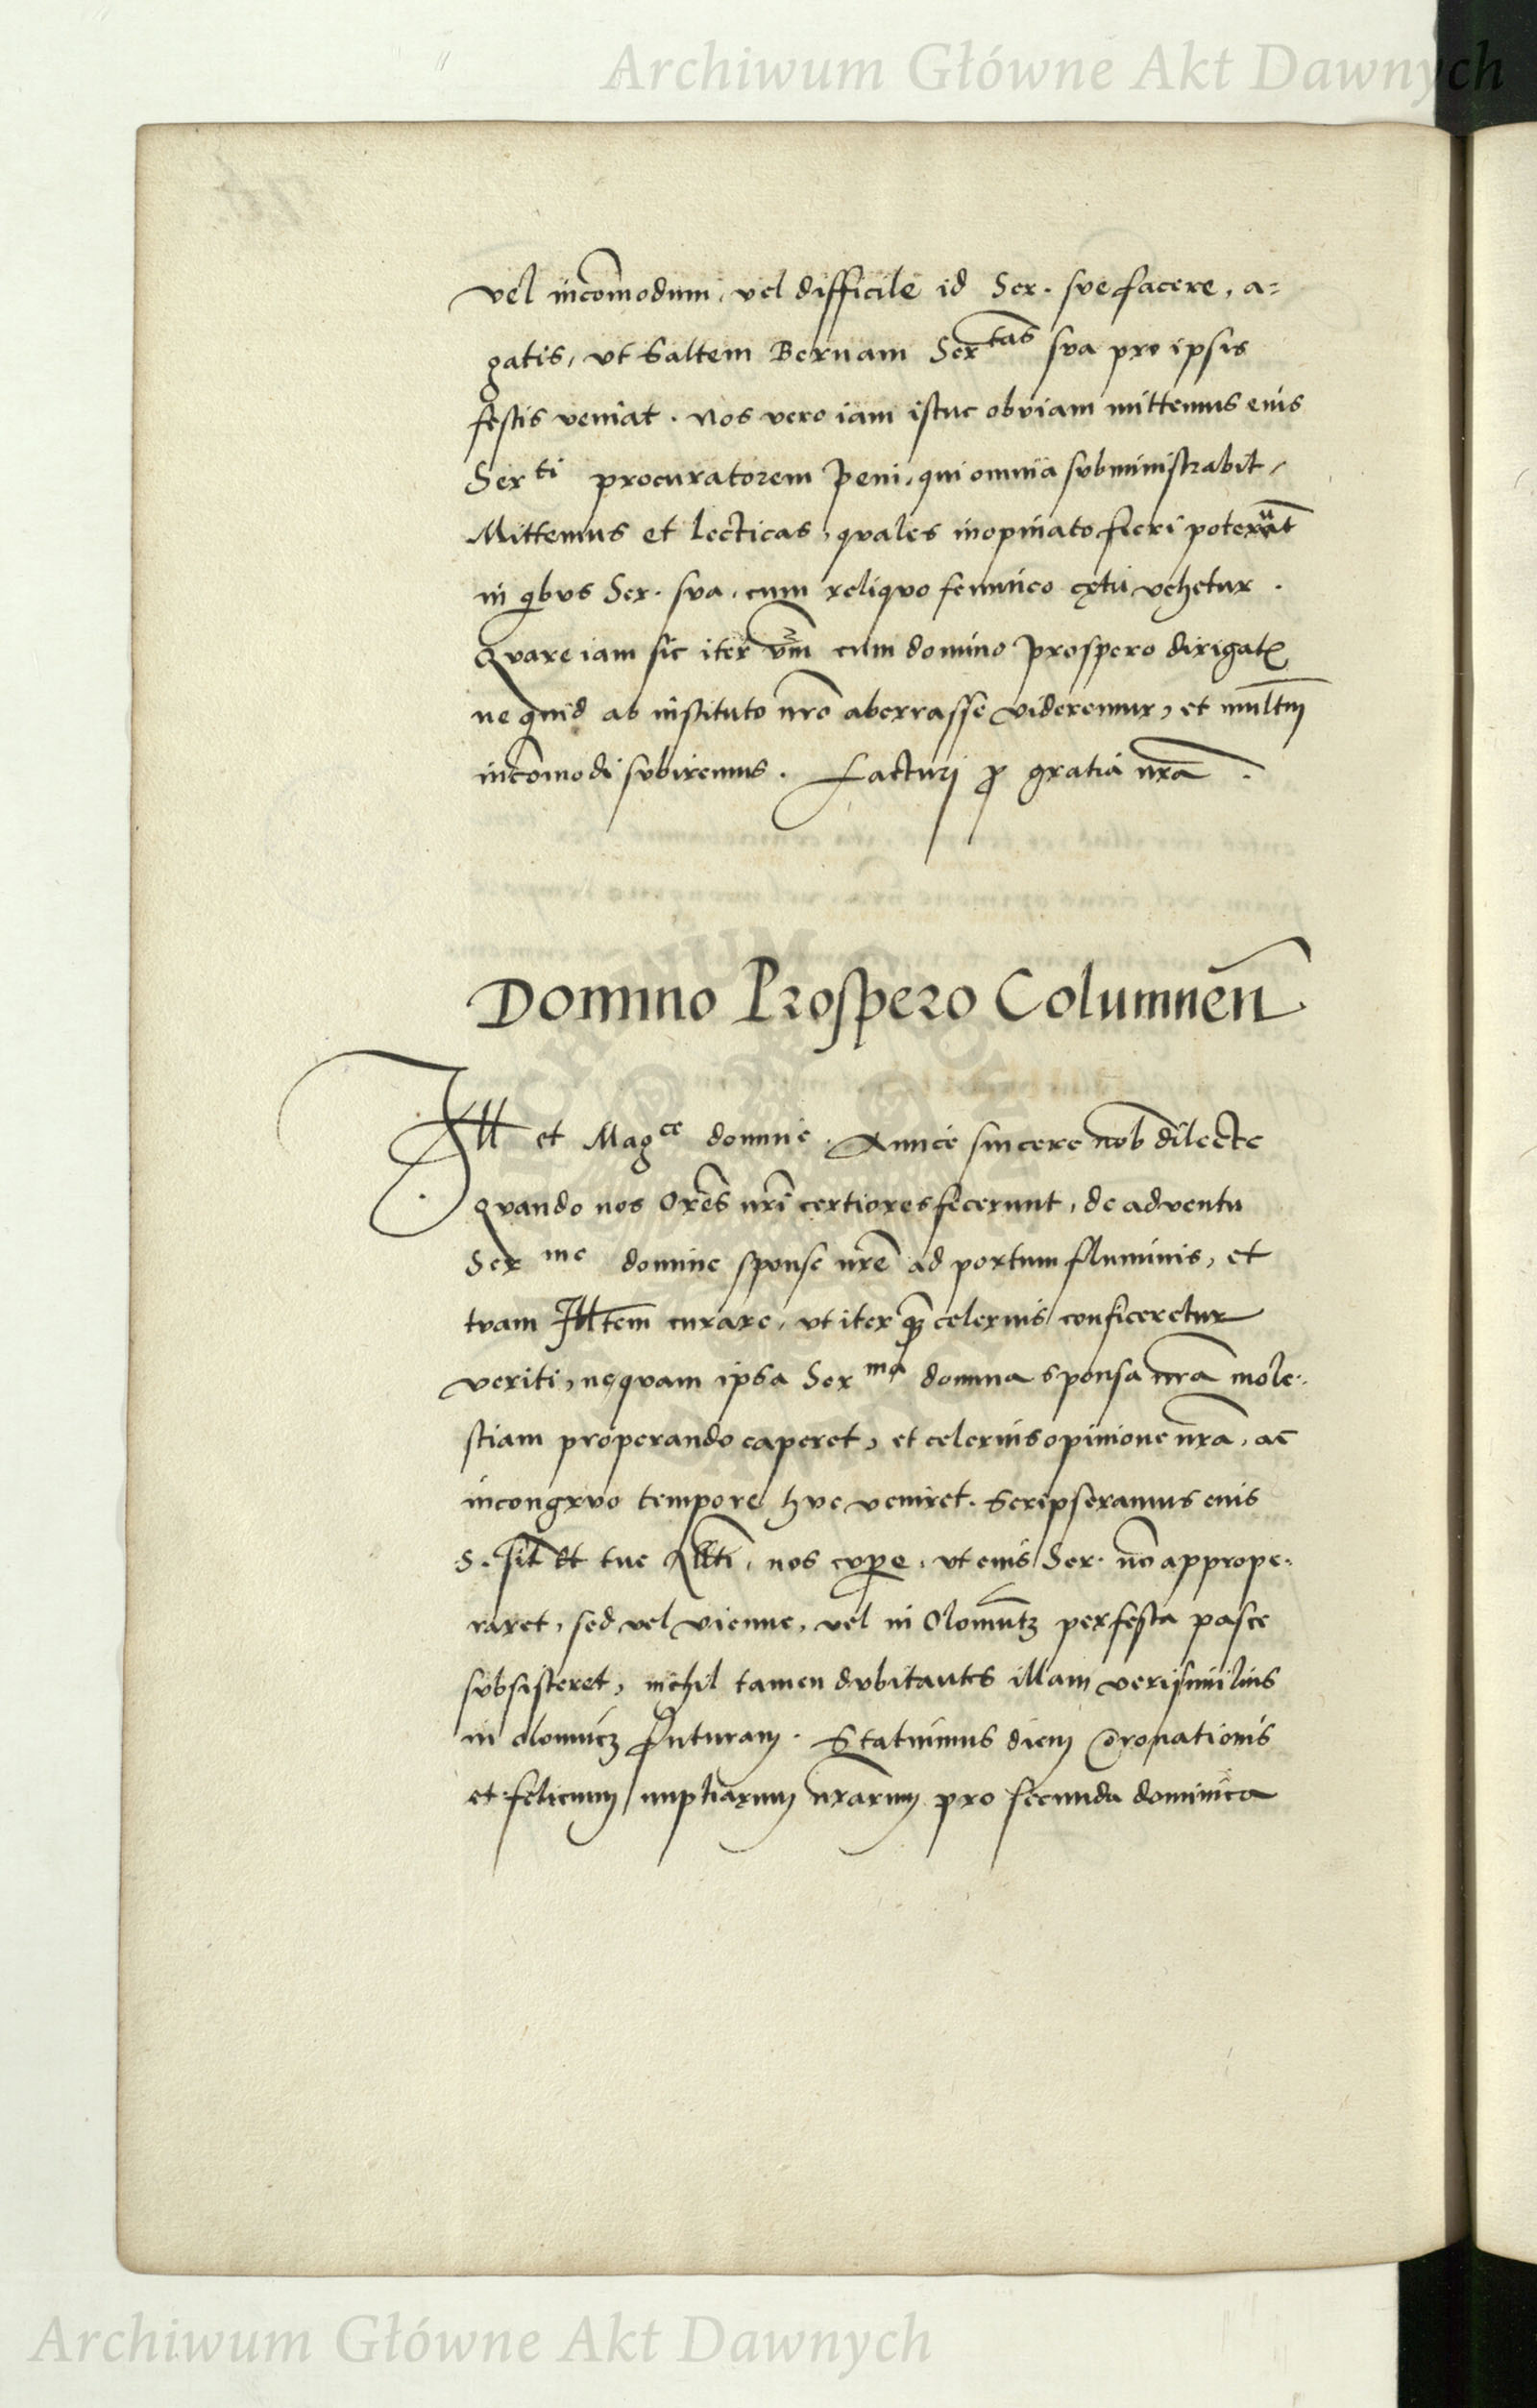 Archiwum Główne Akt Dawnych
vel incōmodum, vel difficile id Ser. sve facere, a=
gatis, vt saltem Bernam Serᵗᵃˢ sva pro ipsis
festis veniat. Nos vero iam istuc obviam mittemus eius
Serᵗⁱ procuratorem peni, qui omnia subministrabit,
Mittemus et lecticas, quales inopinato fieri poterūt
in qbvs Ser. sva, cum reliqvo femineo cętu vehetur.
Qvare iam sic iter vr̄m cum domino prospero dirigatꝭ
ne quid ab instituto nr̄o aberrasse videremur, et multm̄
incōmodi subiremus. Facturi ꝓ gratia nr̄a.
Domino Prospero Columnen̄
Ill et Magᶜᵉ domine. Amice sincere nob̄ dilecte
Qvando nos Or̄es nr̄i certiores fecerunt, de adventu
Serᵐᵉ domine sponse nr̄e ad portum fluminis, et
tvam Ill̄tem curare, vt iter qȝ celerius conficeretur
veriti, neqvam ipsa Serᵐᵃ domina sponsa nr̄a mole-
stiam properando caperet, et celerius opinione nr̄a, ac
incongrvo tempore hvc veniret. Scripseramus eius
S. et tue Ill̄ti, nos cvpe, vt eius Ser. nō apprope-
raret, sed vel vienne, vel in Olomūtz per festa pasce
subsisteret, nichil tamen dvbitantes illam verisimilius
in olomucz futuram. Statuimus diem coronationis
et felicium nuptiarum nr̄arum pro secunda dominica
Archiwum Główne Akt Dawnych